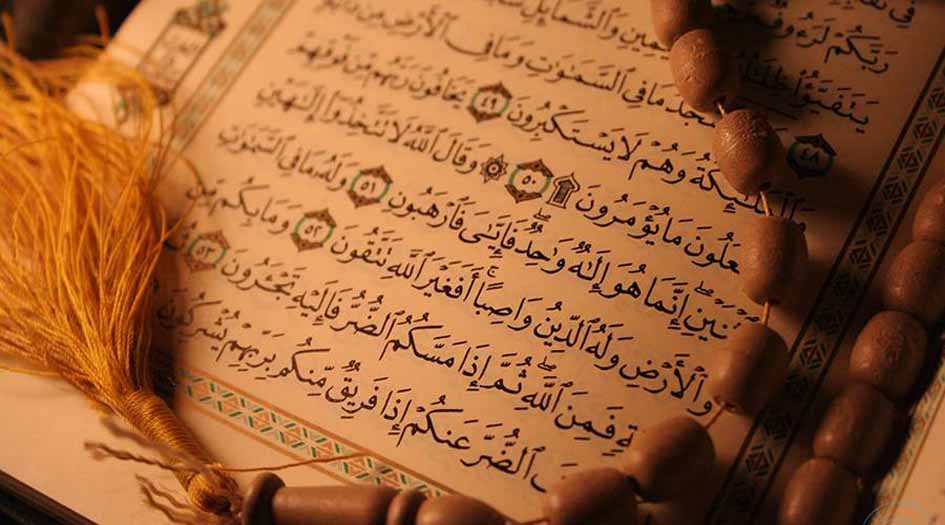 رَبَّكُمْ
يَتَفَيَّؤُا۟ ظِلَٰلُهُۥ ٱلْيَمِينِ وَٱلشَّمَآئِلِ
٤٨ يَسْجُدُ مَا فِى ٱلسَّمَٰوَٰتِ وَمَا فِى ٱلْأَرْضِ مِن دَآبَّةٍ
وَٱلْمَلَٰٓئِكَةُ وَهُمْ لَا يَسْتَكْبِرُونَ ٤٩ يَخَافُونَ رَبَّهُم مِّن فَوْقِهِمْ
وَيَفْعَلُونَ مَا يُؤْمَرُونَ ۩ ٥٠ ۞ وَقَالَ ٱللَّهُ لَا تَتَّخِذُوٓا۟ إِلَٰهَيْنِ
ٱثْنَيْنِ ۖ إِنَّمَا هُوَ إِلَٰهٌ وَٰحِدٌ ۖ فَإِيَّٰىَ فَٱرْهَبُونِ ٥١ وَلَهُۥ مَا فِى ٱلسَّمَٰوَٰتِ
وَٱلْأَرْضِ وَلَهُ ٱلدِّينُ وَاصِبًا ۚ أَفَغَيْرَ ٱللَّهِ تَتَّقُونَ ٥٢ وَمَا بِكُم مِّن
فَمِنَ ٱللَّهِ ۖ ثُمَّ إِذَا مَسَّكُمُ ٱلضُّرُّ فَإِلَيْهِ تَجْـَٔرُونَ ٥٣
ٱلضُّرَّ عَنكُمْ إِذَا فَرِيقٌ مِّنكُم بِرَبِّهِمْ يُشْرِكُونَ